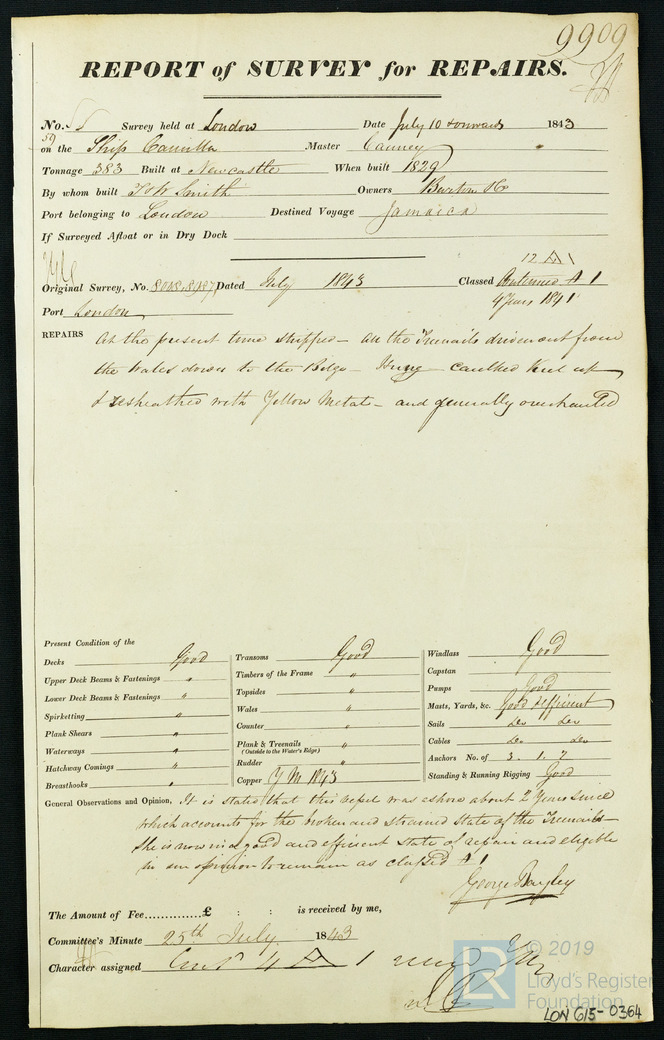 9909
REPORT of SURVEY for REPAIRS.
No. 55 Survey held at London Date July 10 & onwards 1843
59
on the Ship Camilla Master Canney
Tonnage 383 Built at Newcastle When built 1829
By whom built T & W Smith Owners Burton & Co
Port belonging to London Destined Voyage Jamaica
If Surveyed Afloat or in Dry Dock
12 A 1
Original Survey, No. Dated July 1843 Classed Continued A 1
Port London 4 Years 1841
REPAIRS At the present time stripped – all the Treenails driven out from
the Wales down to the Bilge – caulked Keel up
& resheathed with Yellow Metal – and generally overhauled
Present Condition of the
Decks Good Transoms Good Windlass Good
Upper Deck Beams & Fastenings " Timbers of the Frame " Capstan
Lower Deck Beams & Fastenings " Topsides " Pumps Good
Spirketting " Wales " Masts, Yards, &c. Good & efficient
Plank Shears " Counter " Sails Do Do
Waterways " Plank & Treenails " (Outside to the Water's Edge) Cables Do Do
Hatchway Comings " Rudder " Anchors No. of 3. 1. 2
Breasthooks " Copper Y M 1843 Standing & Running Rigging Good
General Observations and Opinion, It is stated that this vessel was ashore about 2 Years since
which accounts for the broken and strained state of the Treenails –
She is now in a good and efficient state of repair and eligible
in our opinion to remain as classed A 1
George Bayley
The Amount of Fee..............£ : : is received by me,
Committee's Minute 25th July 1843
Character assigned Cont'd 4 A 1
© 2019
LR
Lloyd's Register
Foundation
LON 615-0364